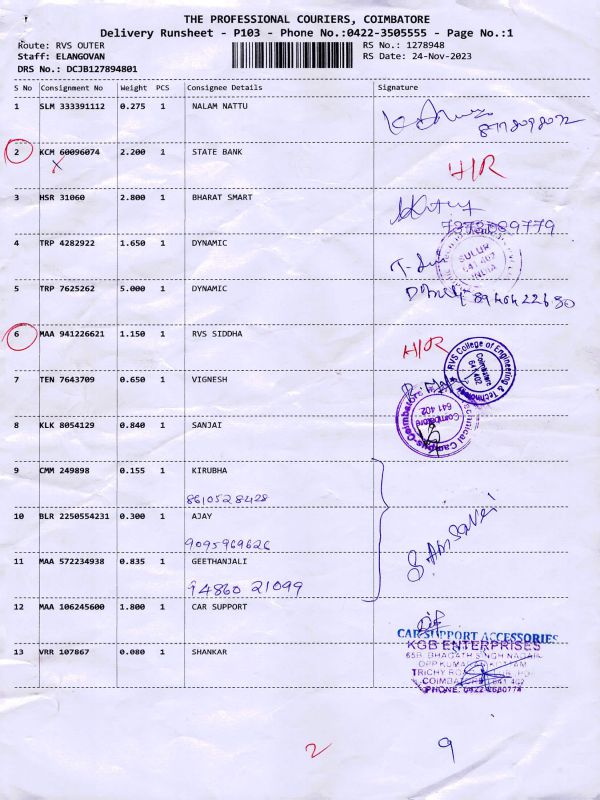 THE PROFESSIONAL COURIERS, COIMBATORE
Delivery Runsheet - P103 - Phone No.:0422-3505555 - Page No.:1
Route: RVS OUTER RS No.: 1278948
Staff: ELANGOVAN RS Date: 24-Nov-2023
DRS No.: DCJB127894801
S No Consignment No Weight PCS Consignee Details Signature
1 SLM 333391112 0.275 1 NALAM NATTU
2 KCM 60096074 2.200 1 STATE BANK
X H/R
3 HSR 31060 2.800 1 BHARAT SMART
7373089779
4 TRP 4282922 1.650 1 DYNAMIC
SULUR
641 402
INDIA
5 TRP 7625262 5.000 1 DYNAMIC
6 MAA 941226621 1.150 1 RVS SIDDHA H/R
RVS College of Engineering & Technology
Coimbatore
641 402
7 TEN 7643709 0.650 1 VIGNESH
Technical Campus-Coimbatore
Coimbatore
641 402
8 KLK 8054129 0.840 1 SANJAI
9 CMM 249898 0.155 1 KIRUBHA
8610528428
10 BLR 2250554231 0.300 1 AJAY
9095969626
11 MAA 572234938 0.835 1 GEETHANJALI
94860 21099
12 MAA 106245600 1.800 1 CAR SUPPORT
CAR SUPPORT ACCESSORIES
13 VRR 107867 0.080 1 SHANKAR
KGB ENTERPRISES
65B, BHAGATH SINGH NAGAR
OPP KUMARAN KOTTAM
TRICHY ROAD
COIMBATORE 641 402
PHONE: 0422 2680774
2 9